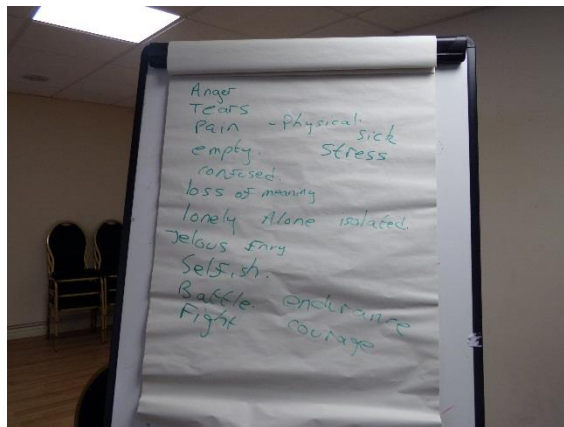 Anger
Tears
Pain - Physical. sick
empty. Stress
confused.
loss of meaning
lonely Alone isolated.
Jelous Envy
Selfish.
Battle. endurance
Fight courage